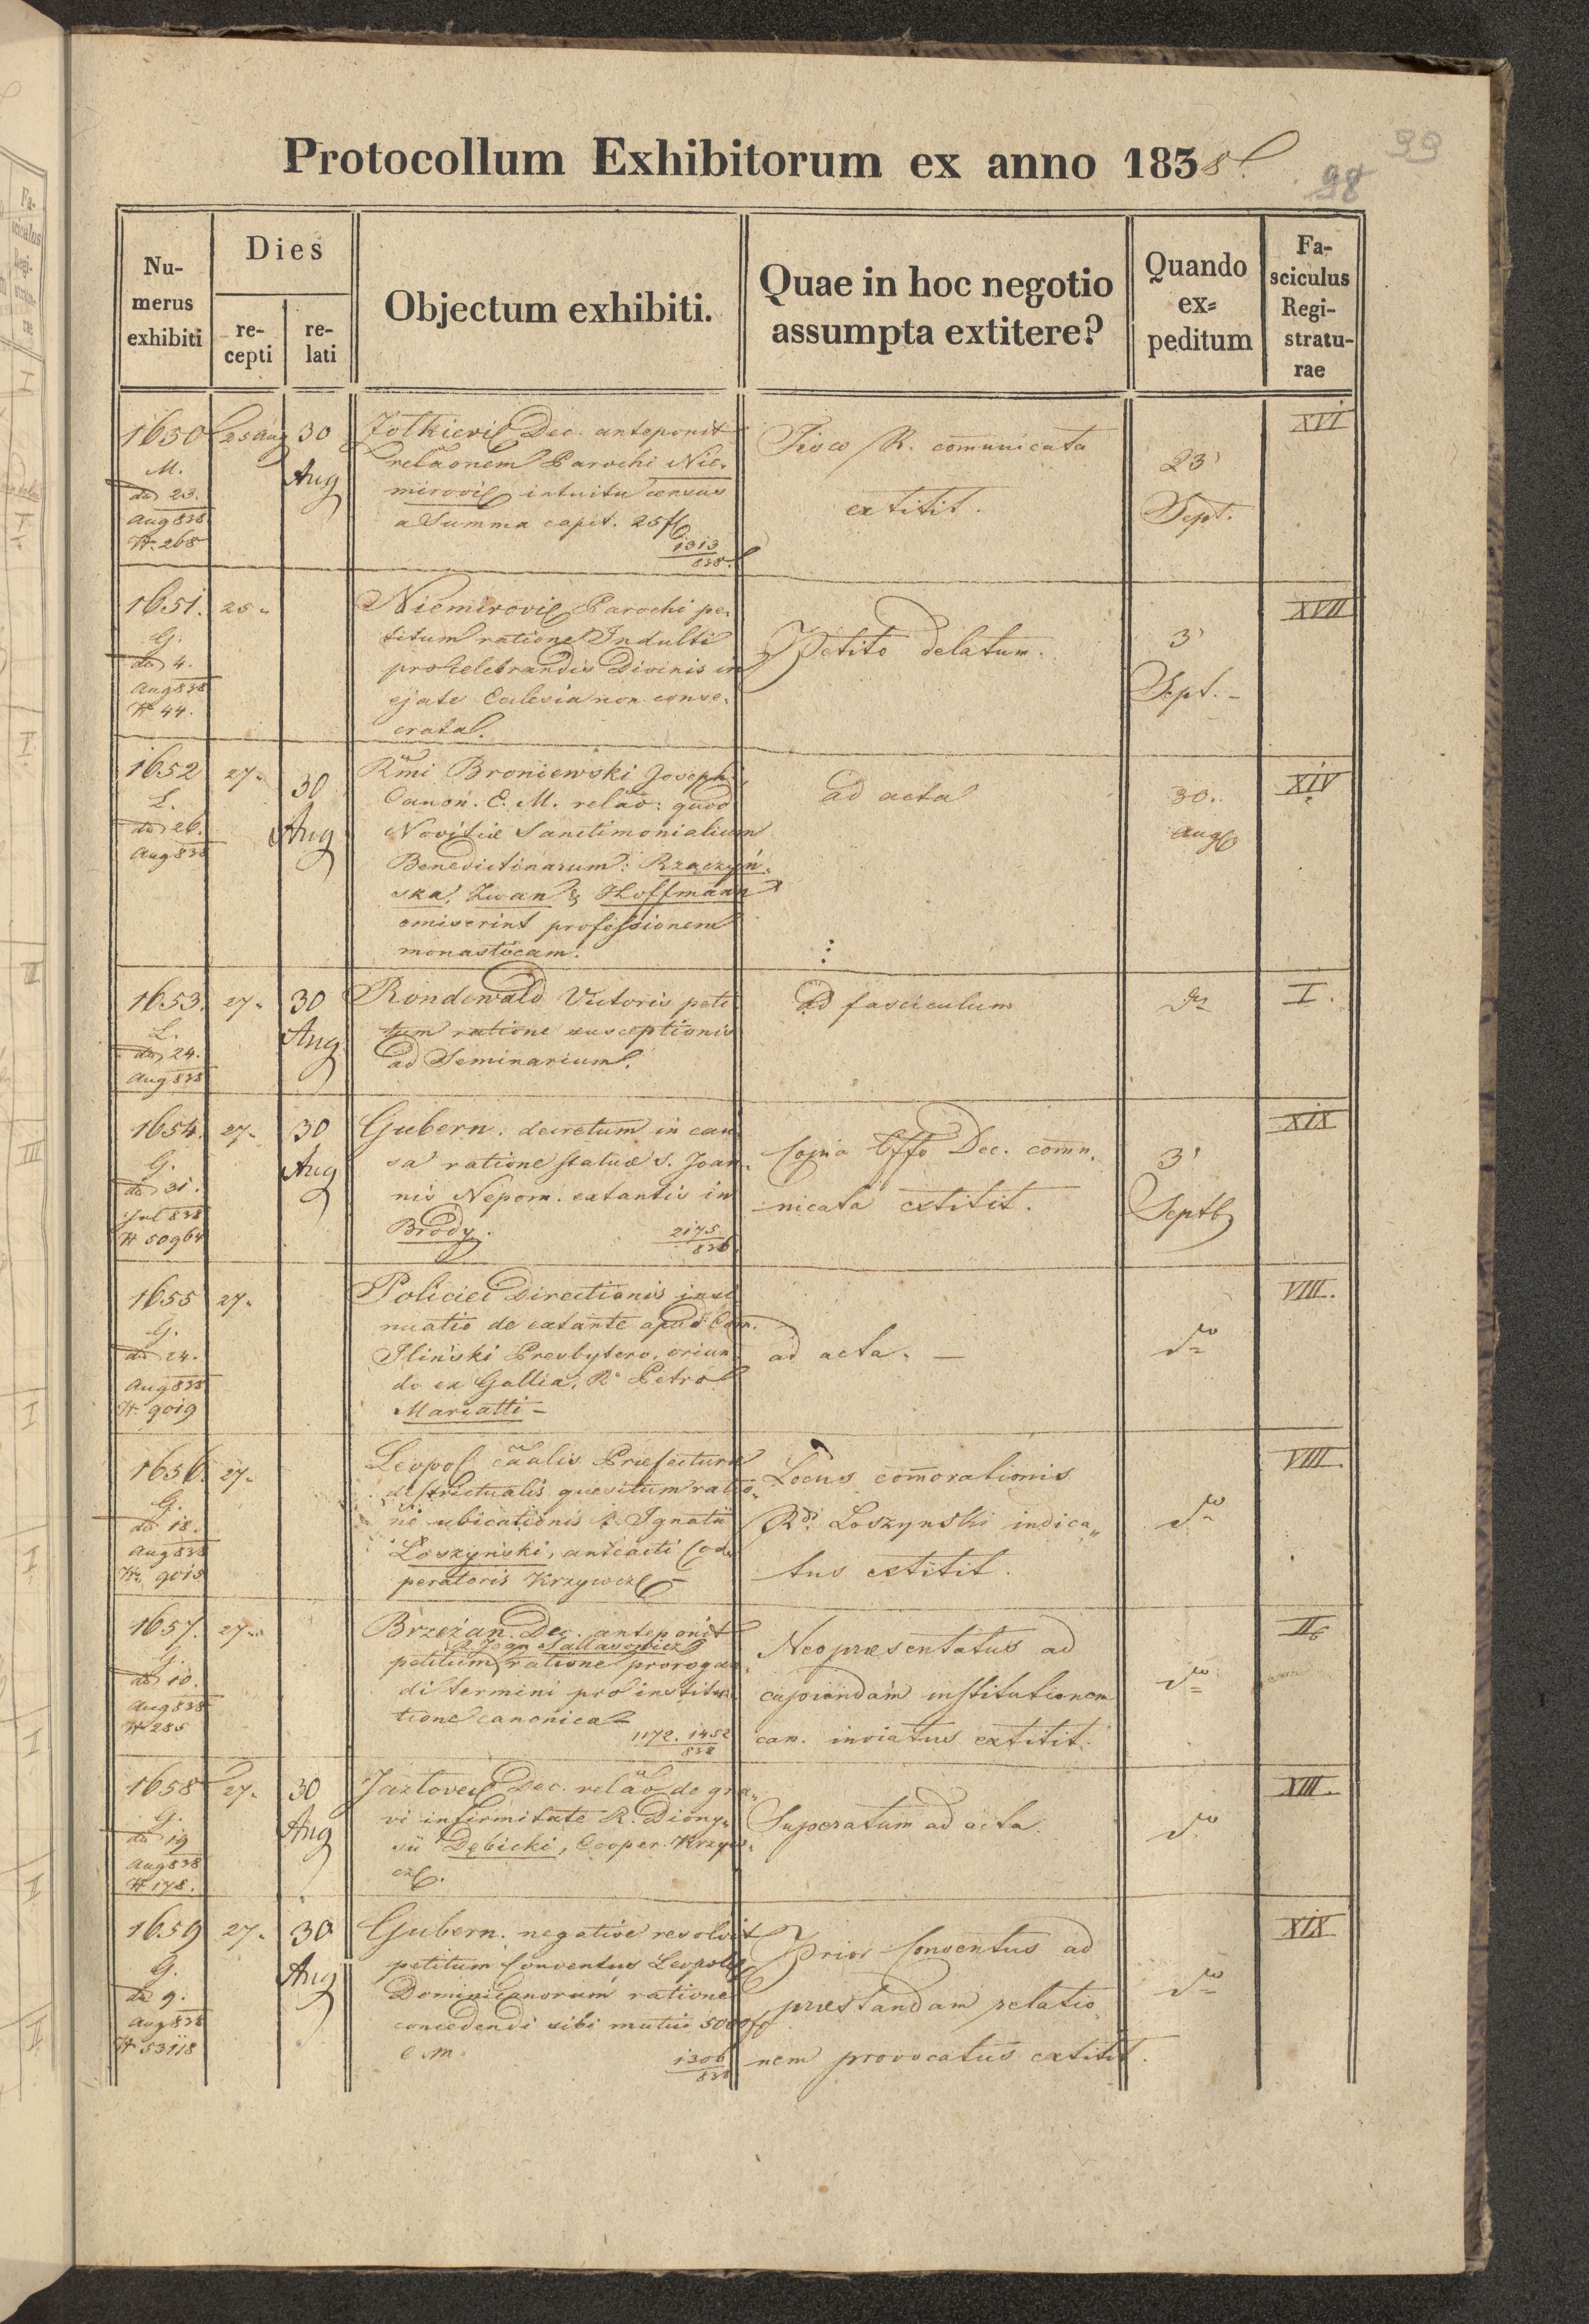 Protocollum Exhibitorum ex anno 1838.
98
99
Numerus exhibiti
Dies
recepti
relati
Objectum exhibiti.
Quae in hoc negotio assumpta extitere?
Quando expeditum
Fasciculus Registraturae
1650
M.
dto 23.
Aug 838
N. 268
25 Aug
30
Aug
Zolkievi Dec. anteponit
relaonem Parochi Nie-
mirovi intuitu census
a Summa capit. 25 f
1313
838
Fisco R. comunicata
extitit.
23
Sept.
XVI
1651.
G.
dto 4.
Aug 838
N 44.
25
Niemirovi Parochi pe-
titum ratione Indulti
pro celebrandis Divinis in
ejate Eclesia non conse-
crata.
Petito delatum.
3
Sept.
XVII
1652
L.
dto 26.
Aug 838
27
30
Aug
Rmi Broniewski Josephi
Canon. E. M. relao: quod
Novitiæ Sanctimonialium
Benedictinarum: Rzączyń-
ska, Zwan & Hoffmann
emiserint professionem
monasticam.
ad acta
30.
Aug
XIV
1653.
L.
dto 24.
Aug 838
27
30
Aug
Rondewald Victoris peti
tum ratione susceptionis
ad Seminarium.
ad fasciculum
dto
I.
1654.
G.
dto 31.
Jul 838
N 50964
27
30
Aug
Gubern: decretum in cau
sa ratione statuæ S. Joan-
nis Nepom. extantis in
Brody.
2175
836
Copia Offo Dec. comu-
nicata extitit.
3
Septb
XIX
1655
G.
dto 24.
Aug 838
N. 9019
27
Policiei Directionis insi
nuatio de extante apud Com.
Iliński Presbytero, oriun
do ex Gallia, R. Petro
Marcatti
ad acta.
dto
VIII.
1656.
G.
dto 18.
Aug 838
27
Leopol caalis Præfecturæ
districtualis quesitum ratio-
ne ubicationis R. Ignatii
Łoszyński, anteacti Coo-
peratoris Krzywcz
Locus comorationis
Rdi Loszynski indica-
tus extitit.
dto
VIII.
1657.
G.
dto 10.
Aug 838
N 285
27
Brzeżan. Dec. anteponit
R. Joan Sallasowicz
petitum ratione prorogan-
di termini pro institu-
tione canonica
1172. 1452
838
Neopræsentatus ad
capiendam institutionem
can. inviatus extitit.
dto
II
1658
G.
dto 19
Aug 838
N 178.
27
30
Aug
Jazlovec Dec. relao de gra-
vi infirmitate R. Diony-
sii Dębicki, Cooper. Krzyw-
cz.
Superatum ad acta.
dto
XIII.
1659
G.
dto 9.
Aug 838
N 53118
27
30
Aug
Gubern. negative resolvit
petitum Conventus Leopol
Dominicanorum ratione
concedendi sibi mutui 5000 f
C. M.
1306
838
Prior Conventus ad
præstandam relatio
nem provocatus extitit.
dto
XIX